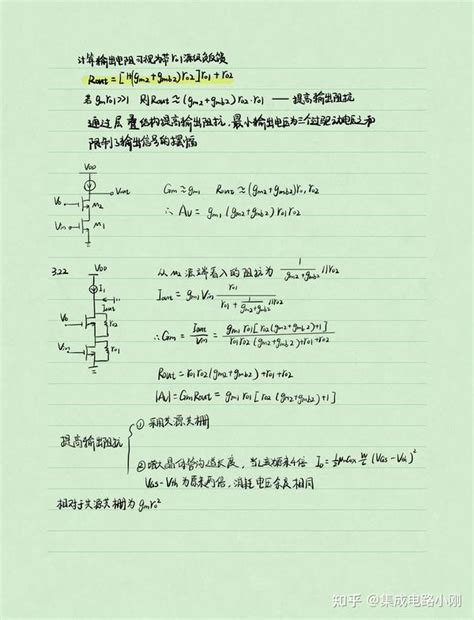 计算输出电阻可视为带ro1源级负反馈
Rout = [1+(gm2+gmb2)ro2]ro1 + ro2
若 gmro>>1 则 Rout ≈ (gm2+gmb2)ro2·ro1 —— 提高输出阻抗
通过层叠结构提高输出阻抗，最小输出电压为三个过驱动电压之和
限制了输出信号的摆幅
VDD
Vout
Vb M2
Vin M1
Gm ≈ gm1 Rout ≈ (gm2+gmb2)ro1ro2
∴ Av = gm1(gm2+gmb2)ro1ro2
3.22
VDD
I1
Iout
Vb ro2
Vin ro1
从M2源端看入的阻抗为 1/(gm2+gmb2) //ro2
Iout = gm1Vin ro1/(ro1 + 1/(gm2+gmb2) //ro2)
∴ Gm = Iout/Vin = gm1ro1[ro2(gm2+gmb2)+1]/(ro1ro2(gm2+gmb2)+ro1+ro2)
Rout = ro1ro2(gm2+gmb2)+ro1+ro2
|Av| = GmRout = gm1ro1[ro2(gm2+gmb2)+1]
提高输出阻抗
① 采用共源共栅
② 增大晶体管沟道长度，当L为原来4倍 ID = ½μnCox W/L (VGS-Vth)²
VGS-Vth 为原来两倍，消耗电压余度相同
相对于共源共栅为 gmro²
知乎 @集成电路小刚